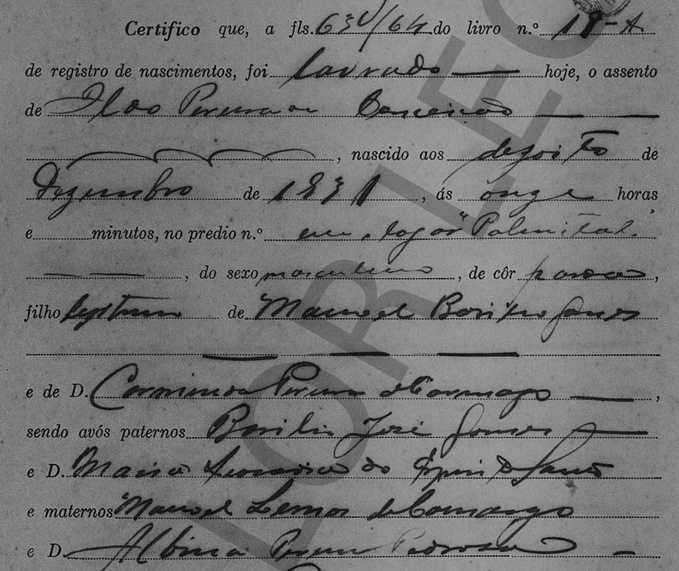 Certifico que, a fls. 63v/64 do livro n.º 19-A
de registro de nascimentos, foi lavrado hoje, o assento
de Ildo Pereira da Conceição
, nascido aos dezoito de
Dezembro de 1931, ás onze horas
e minutos, no predio n.º em, logar "Palmital"
, do sexo masculino, de côr parda,
filho legitimo de Manoel Basilio Gomes
e de D. Carminosa Pereira de Camargo,
sendo avós paternos Basilio José Gomes
e D. Maria do Espirito Santo
e maternos Manoel Lemos de Camargo
e D. Albina Pereira Pedrosa